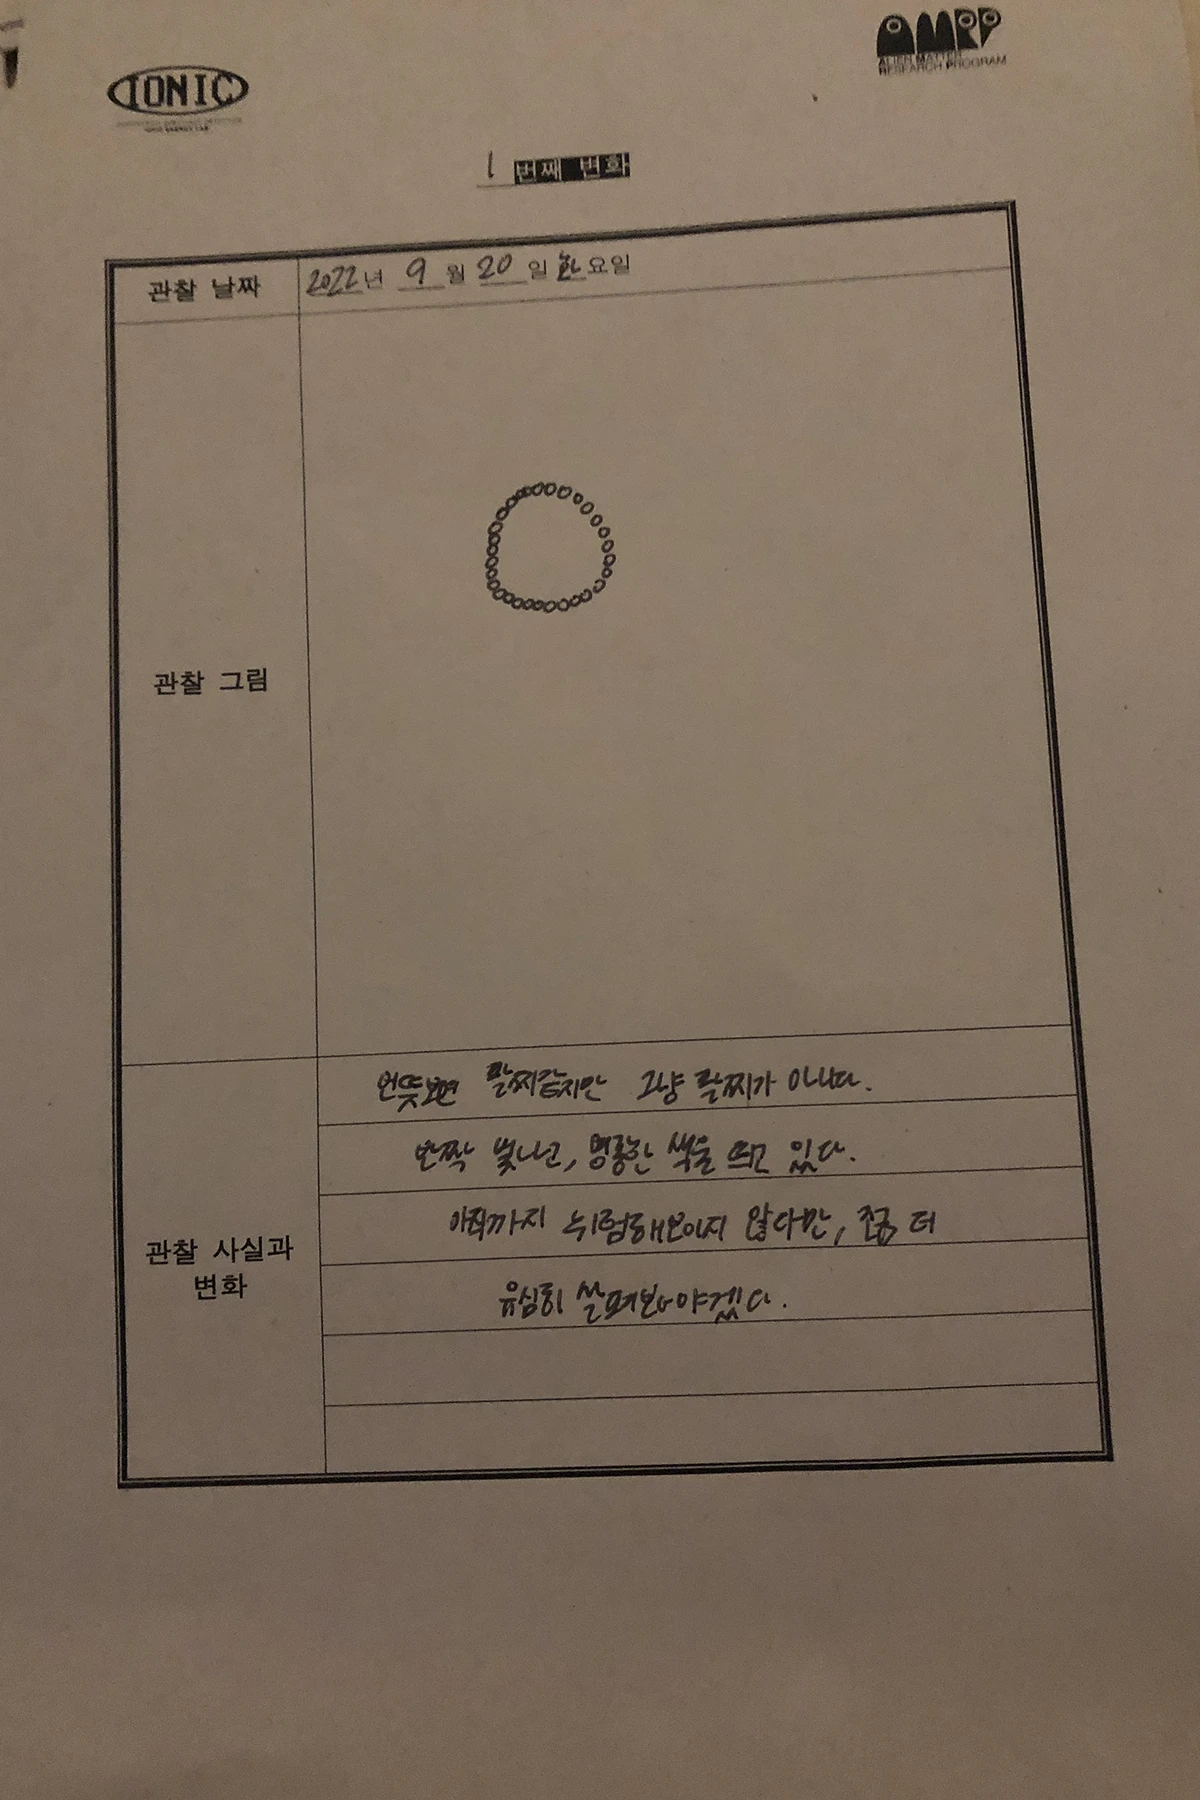 IONIC
AMRP
ALIEN MATTER
RESEARCH PROGRAM
1 번째 변화
관찰 날짜
2022년 9월 20일 화요일
관찰 그림
관찰 사실과
변화
언뜻보면 팔찌같지만 그냥 팔찌가 아니다.
반짝 빛나고, 영롱한 색을 띄고 있다.
아직까지 위험해보이지 않다만, 조금 더
유심히 살펴봐야겠다.